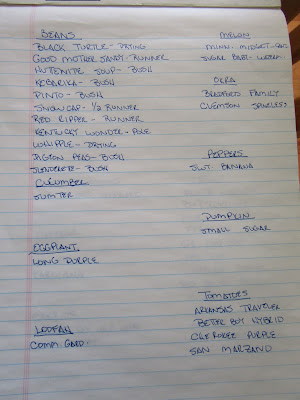 BEANS
BLACK TURTLE - DRYING
GOOD MOTHER SANDY - RUNNER
HUTTENITE SOUP - BUSH
KEBARIKA - BUSH
PINTO - BUSH
SNOWCAP - 1/2 RUNNER
RED RIPPER - RUNNER
KENTUCKY WONDER - POLE
WHIPPLE - DRYING
PIGEON PEAS - BUSH
BUSH
CUCUMBER
SUMTER
EGGPLANT
LONG PURPLE
LOOFAH
COMM. GARD.
MELON
MINN. MIDGET -
SUGAR BABY -
OKRA
BRADFORD FAMILY
CLEMSON SPINELESS
PEPPERS
SWT. BANANA
PUMPKIN
SMALL SUGAR
TOMATOES
ARKANSAS TRAVELER
BETTER BOY HYBRID
CHEROKEE PURPLE
SAN MARZANO